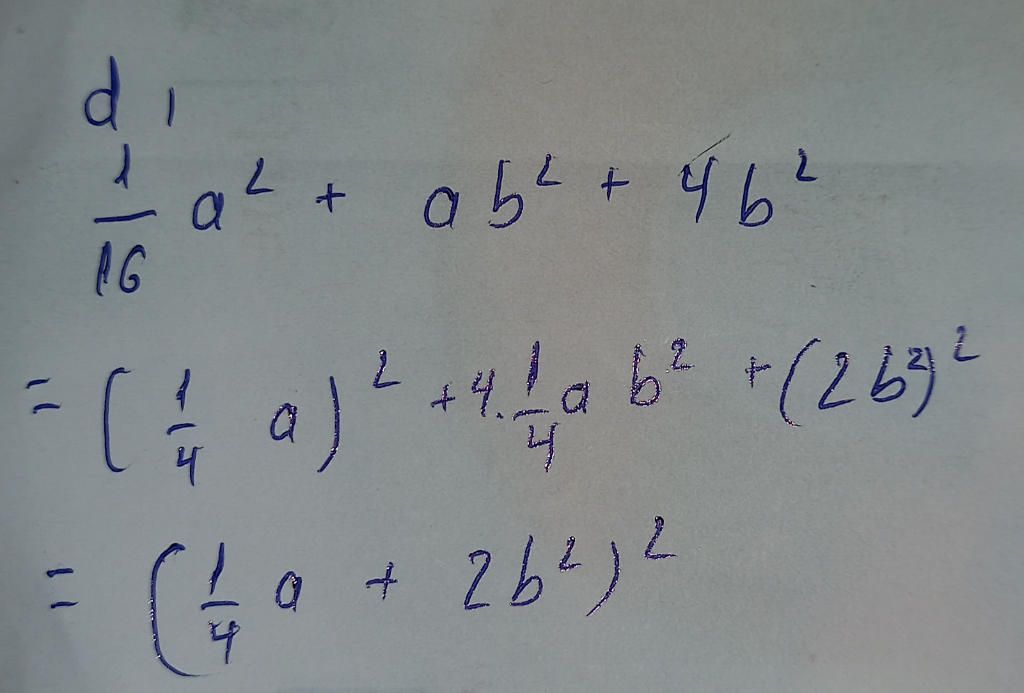 d 1
1/16 a² + ab² + 4b²
= (1/4 a)² + 4 . 1/4 a b² + (2b²)²
= (1/4 a + 2b²)²